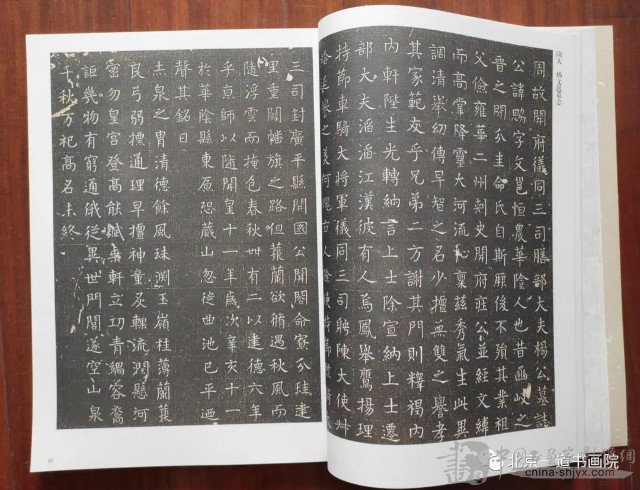 隋人
周故開府儀同三司膳部大夫楊公墓誌
公諱字文恒農華陰人也昔之
晉之開介圭命氏自斯厥後不殞其業祖
父儉雍華二州刺史開府莊公並經文緯
而高掌降靈大河流祉稟茲秀氣生此異
調清舉幼傳早智之名少擅無雙之譽孝
其家範友乎兄弟二方謝其門則釋褐內
內軒陛生光轉納言上士除宣納上士遷
部大夫滔滔江漢彼有人焉鳳舉鸞揚理
持節車騎大將軍儀同三司聘陳大使卅
三司封廣平縣開國公開閤命寮介珪建
里重開幡旗之路但蘭欲脩遇秋風而
隨浮雲而掩色春秋卌有二以建德六年
乎京師以隨開皇十一年歲次辛亥十一
於華陰縣東原恐山忽徙曲池已平迺
聲其銘曰
赤泉之胄清德餘風珠潤玉嶺桂薄蘭叢
良弓弱標通理早擅神童炙輠流潤懸河
密勿皇宮登高能賦華軒立功青緺裔
詎幾物有窮通俄從異世門閭遂空山泉
千秋万祀高名未終
30
北京一道书画院
china-shjyx.com